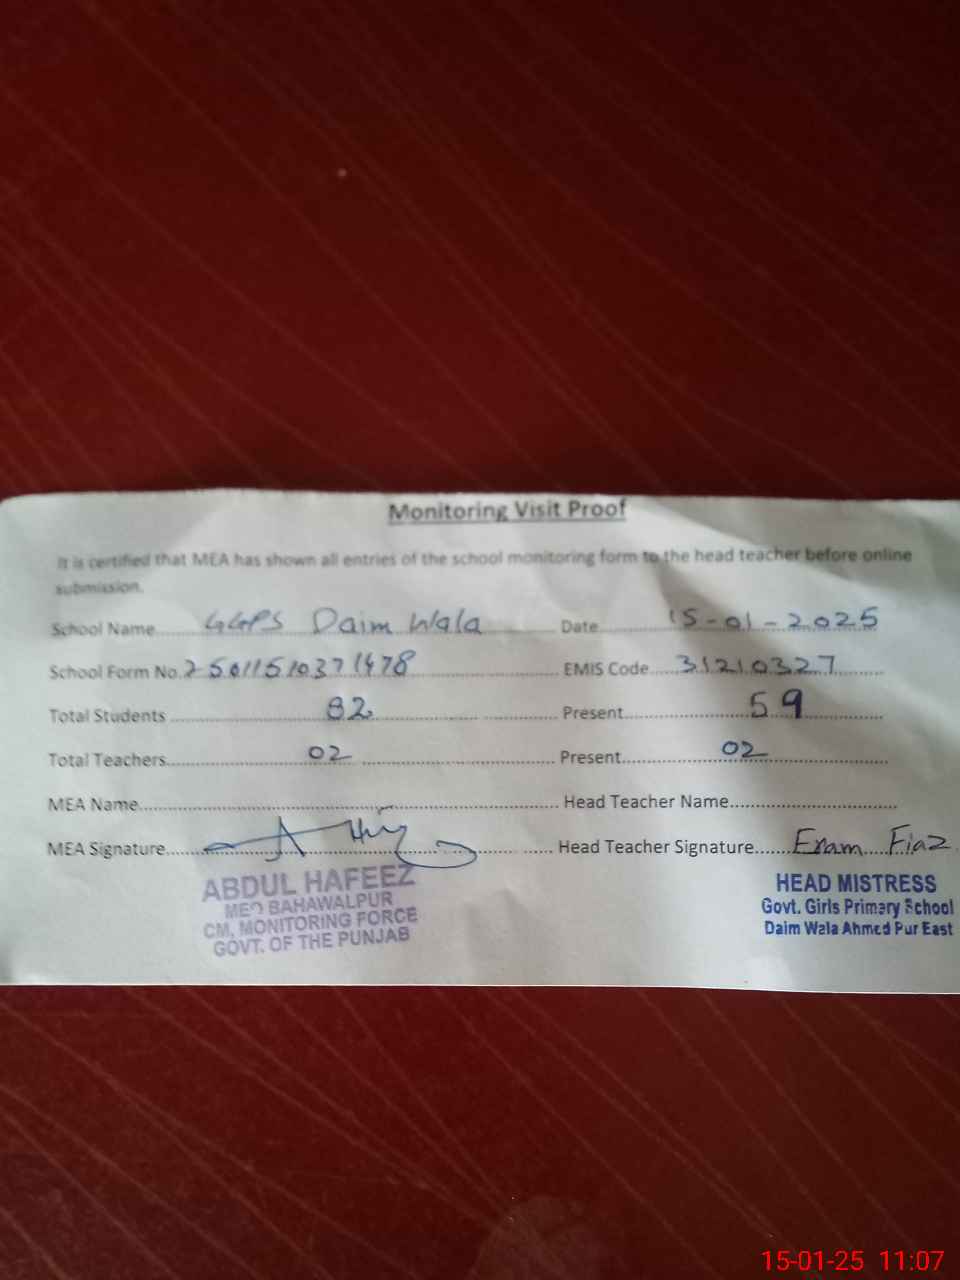 Monitoring Visit Proof
It is certified that MEA has shown all entries of the school monitoring form to the head teacher before online
submission.
School Name GGPS Daim Wala Date 15-01-2025
School Form No. 25011510371478 EMIS Code 31210327
Total Students 82 Present 59
Total Teachers 02 Present 02
MEA Name Head Teacher Name
MEA Signature Head Teacher Signature Eram Fiaz
ABDUL HAFEEZ
MEO BAHAWALPUR
CM, MONITORING FORCE
GOVT. OF THE PUNJAB
HEAD MISTRESS
Govt. Girls Primary School
Daim Wala Ahmed Pur East
15-01-25 11:07